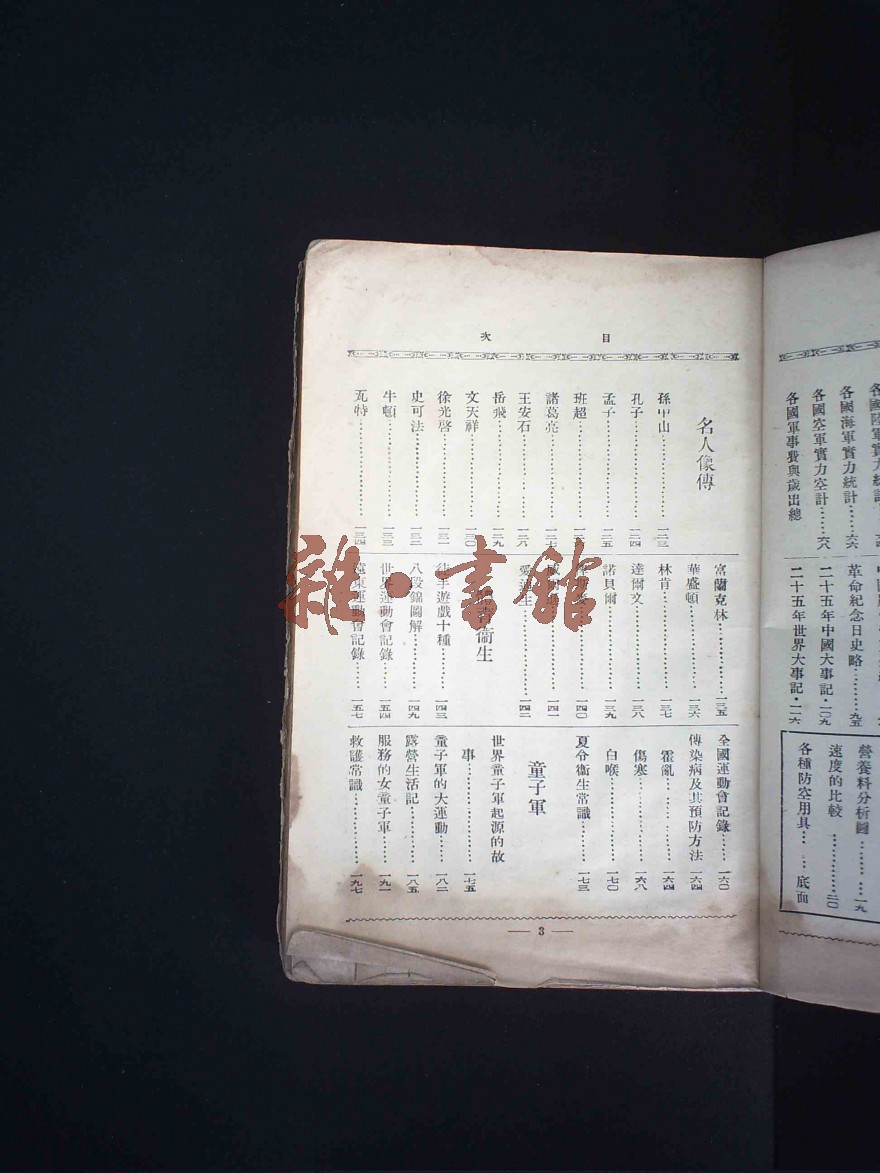 目　次
名人像傳
孫中山……一二三
孔子……一二四
孟子……一二五
班超……一二六
諸葛亮……一二七
王安石……一二八
岳飛……一二九
文天祥……一三〇
徐光啓……一三一
史可法……一三二
牛頓……一三三
瓦特……一三四
富蘭克林……一三五
華盛頓……一三六
林肯……一三七
達爾文……一三八
諾貝爾……一三九
一四〇
一四一
愛迪生……一四二
衞生
徒手遊戲十種……一四三
八段錦圖解……一四九
世界運動會記錄……一五四
遠東運動會記錄……一五七
全國運動會記錄……一六〇
傳染病及其預防方法……一六四
霍亂……一六四
傷寒……一六八
白喉……一七〇
夏令衞生常識……一七三
童子軍
世界童子軍起源的故
事……一七五
童子軍的大運動……一八二
露營生活記……一八五
服務的女童子軍……一九一
救護常識……一九七
3
各國海軍實力統計……六六
各國空軍實力空計……六八
各國軍事費與歲出總
革命紀念日史略……九五
二十五年中國大事記·一〇九
二十五年世界大事記·一一六
營養料分析圖……一九
速度的比較……二〇
各種防空用具……底面
雜·書館